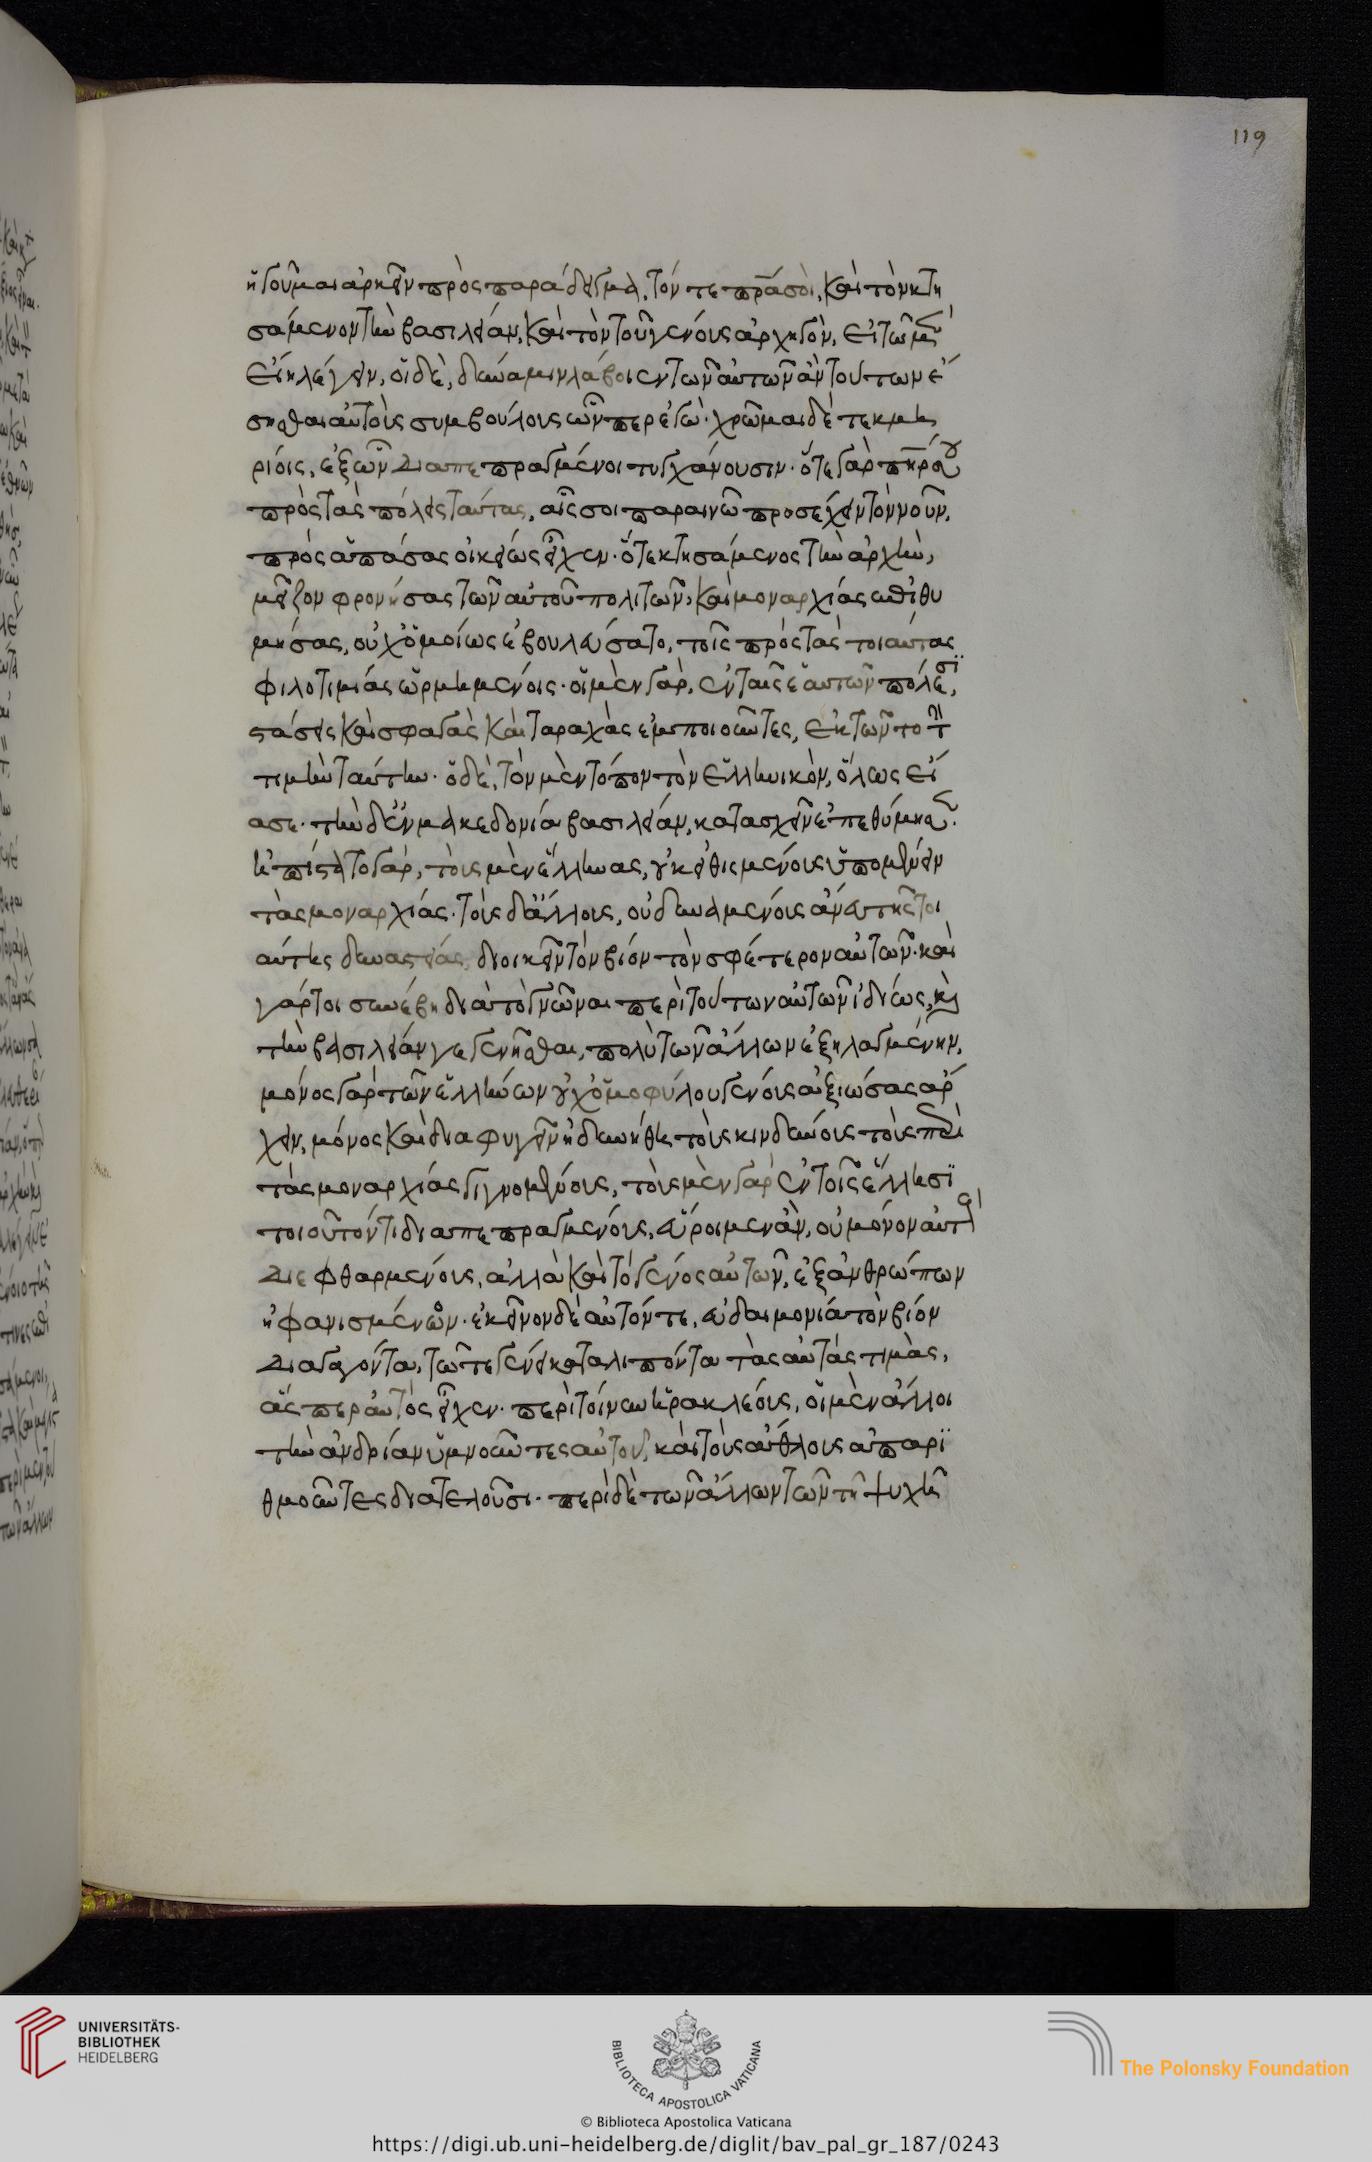 ἡγοῦμαι ἀρκεῖν πρὸς παράδειγμα, τόν τε πρ̅α σοὶ, καὶ τὸν κτη
σάμενον τὴν βασιλείαν, καὶ τὸν τοῦ γένους ἀρχηγὸν, εἰ τῶ μὲν
εἴη λέγειν, οἱ δὲ, δύναμιν λάβοιεν τῶν αὐτῶν ἂν τούτων
αὐτοὺς συμβούλους ὧνπερ ἐγώ· χρῶμαι δὲ τεκμη
ρίοις, ἐξ ὧν διαπεπραγμένοι τυγχάνουσιν· ὅτε γὰρ πη̅ρ σου
πρὸς τὰς πόλεις ταύτας, αἷς σοι παραινῶ προσέχειν τὸν νοῦν,
πρὸς ἁπάσας οἰκείως εἶχεν· ὅτε κτησάμενος τὴν ἀρχὴν,
μεῖζον φρονήσας τῶν αὐτοῦ πολιτῶν, καὶ μοναρχίας ἐπιθυ
μήσας, οὐχ ὁμοίως ἐβουλεύσατο, τοῖς πρὸς τὰς τοιαύτας
φιλοτιμίας ὡρμημένοις· οἱ μὲν γὰρ, ἐν ταῖς ἑαυτῶν πόλεσι,
στάσεις καὶ σφαγὰς καὶ ταραχὰς ἐμποιοῦντες, ἐκτῶντο τ
τιμὴν ταύτην· ὁ δὲ, τὸν μὲν τόπον τὸν ἑλληνικὸν, ὅλως εἴ
ασε· τὴν δ' ἐν μακεδονία βασιλείαν, κατασχεῖν ἐπεθύμησεν·
ἠπίστατο γὰρ, τοὺς μὲν ἕλληνας, οὐκ εἰθισμένους ὑπομένειν
τὰς μοναρχίας· τοὺς δ' ἄλλους, οὐ δυναμένους ἄνευ τῆς τοι
αύτης δυναστείας, διοικεῖν τὸν βίον τὸν σφέτερον αὐτῶν· καὶ
γάρ τοι συνέβη διὰ τὸ γνῶναι περὶ τούτων αὐτὸν ἰδίως, καὶ
τὴν βασιλείαν γεγενῆσθαι, πολὺ τῶν ἄλλων ἐξηλαγμένην,
μόνος γὰρ τῶν ἑλλήνων οὐχ ὁμοφύλου γένους ἀξιώσας ἄρ
χειν, μόνος καὶ διαφυγεῖν ἠδυνήθη τοὺς κινδύνους τοὺς περὶ
τὰς μοναρχίας γιγνομένους, τοὺς μὲν γὰρ ἐν τοῖς ἕλλησι
τοιοῦτόν τι διαπεπραγμένους, εὕροιμεν ἂν, οὐ μόνον αὐτοὺς
διεφθαρμένους, ἀλλὰ καὶ τὸ γένος αὐτῶν, ἐξ ἀνθρώπων
ἠφανισμένον· ἐκεῖνον δὲ αὐτόν τε, εὐδαιμονία τὸν βίον
διαγαγόντα, τῶ τε γένει καταλιπόντα τὰς αὐτὰς τιμὰς,
ἅσπερ αὐτὸς εἶχεν· περὶ τοίνυν ἡρακλέους, οἱ μὲν ἄλλοι
τὴν ἀνδρίαν ὑμνοῦντες αὐτοῦ, καὶ τοὺς ἄθλους ἀπαρι
θμοῦντες διατελοῦσι· περὶ δὲ τῶν ἄλλων τῶν τῆ ψυχῆ
119
UNIVERSITÄTS-
BIBLIOTHEK
HEIDELBERG
BIBLIOTECA APOSTOLICA VATICANA
The Polonsky Foundation
© Biblioteca Apostolica Vaticana
https://digi.ub.uni-heidelberg.de/diglit/bav_pal_gr_187/0243